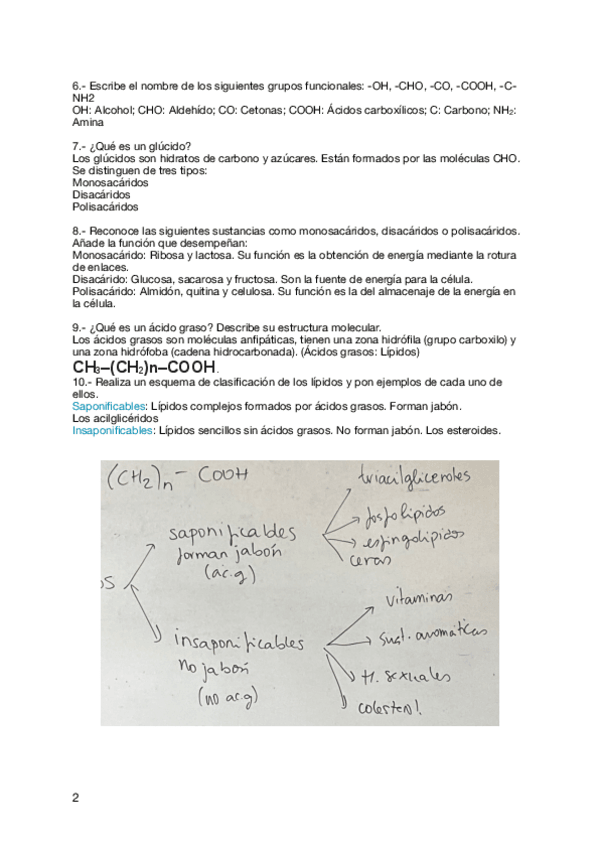 6.- Escribe el nombre de los siguientes grupos funcionales: -OH, -CHO, -CO, -COOH, -C-
NH2
OH: Alcohol; CHO: Aldehído; CO: Cetonas; COOH: Ácidos carboxílicos; C: Carbono; NH₂:
Amina
7.- ¿Qué es un glúcido?
Los glúcidos son hidratos de carbono y azúcares. Están formados por las moléculas CHO.
Se distinguen de tres tipos:
Monosacáridos
Disacáridos
Polisacáridos
8.- Reconoce las siguientes sustancias como monosacáridos, disacáridos o polisacáridos.
Añade la función que desempeñan:
Monosacárido: Ribosa y lactosa. Su función es la obtención de energía mediante la rotura
de enlaces.
Disacárido: Glucosa, sacarosa y fructosa. Son la fuente de energía para la célula.
Polisacárido: Almidón, quitina y celulosa. Su función es la del almacenaje de la energía en
la célula.
9.- ¿Qué es un ácido graso? Describe su estructura molecular.
Los ácidos grasos son moléculas anfipáticas, tienen una zona hidrófila (grupo carboxilo) y
una zona hidrófoba (cadena hidrocarbonada). (Ácidos grasos: Lípidos)
CH₃–(CH₂)n–COOH.
10.- Realiza un esquema de clasificación de los lípidos y pon ejemplos de cada uno de
ellos.
Saponificables: Lípidos complejos formados por ácidos grasos. Forman jabón.
Los acilglicéridos
Insaponificables: Lípidos sencillos sin ácidos grasos. No forman jabón. Los esteroides.
(CH₂)n – COOH
triacilgliceroles
fosfolipidos
saponificables
esfingolipidos
forman jabón
ceras
(ac.g)
os
vitaminas
insaponificables
sust. aromáticas
no jabón
H. sexuales
(no ac.g)
colesterol.
2